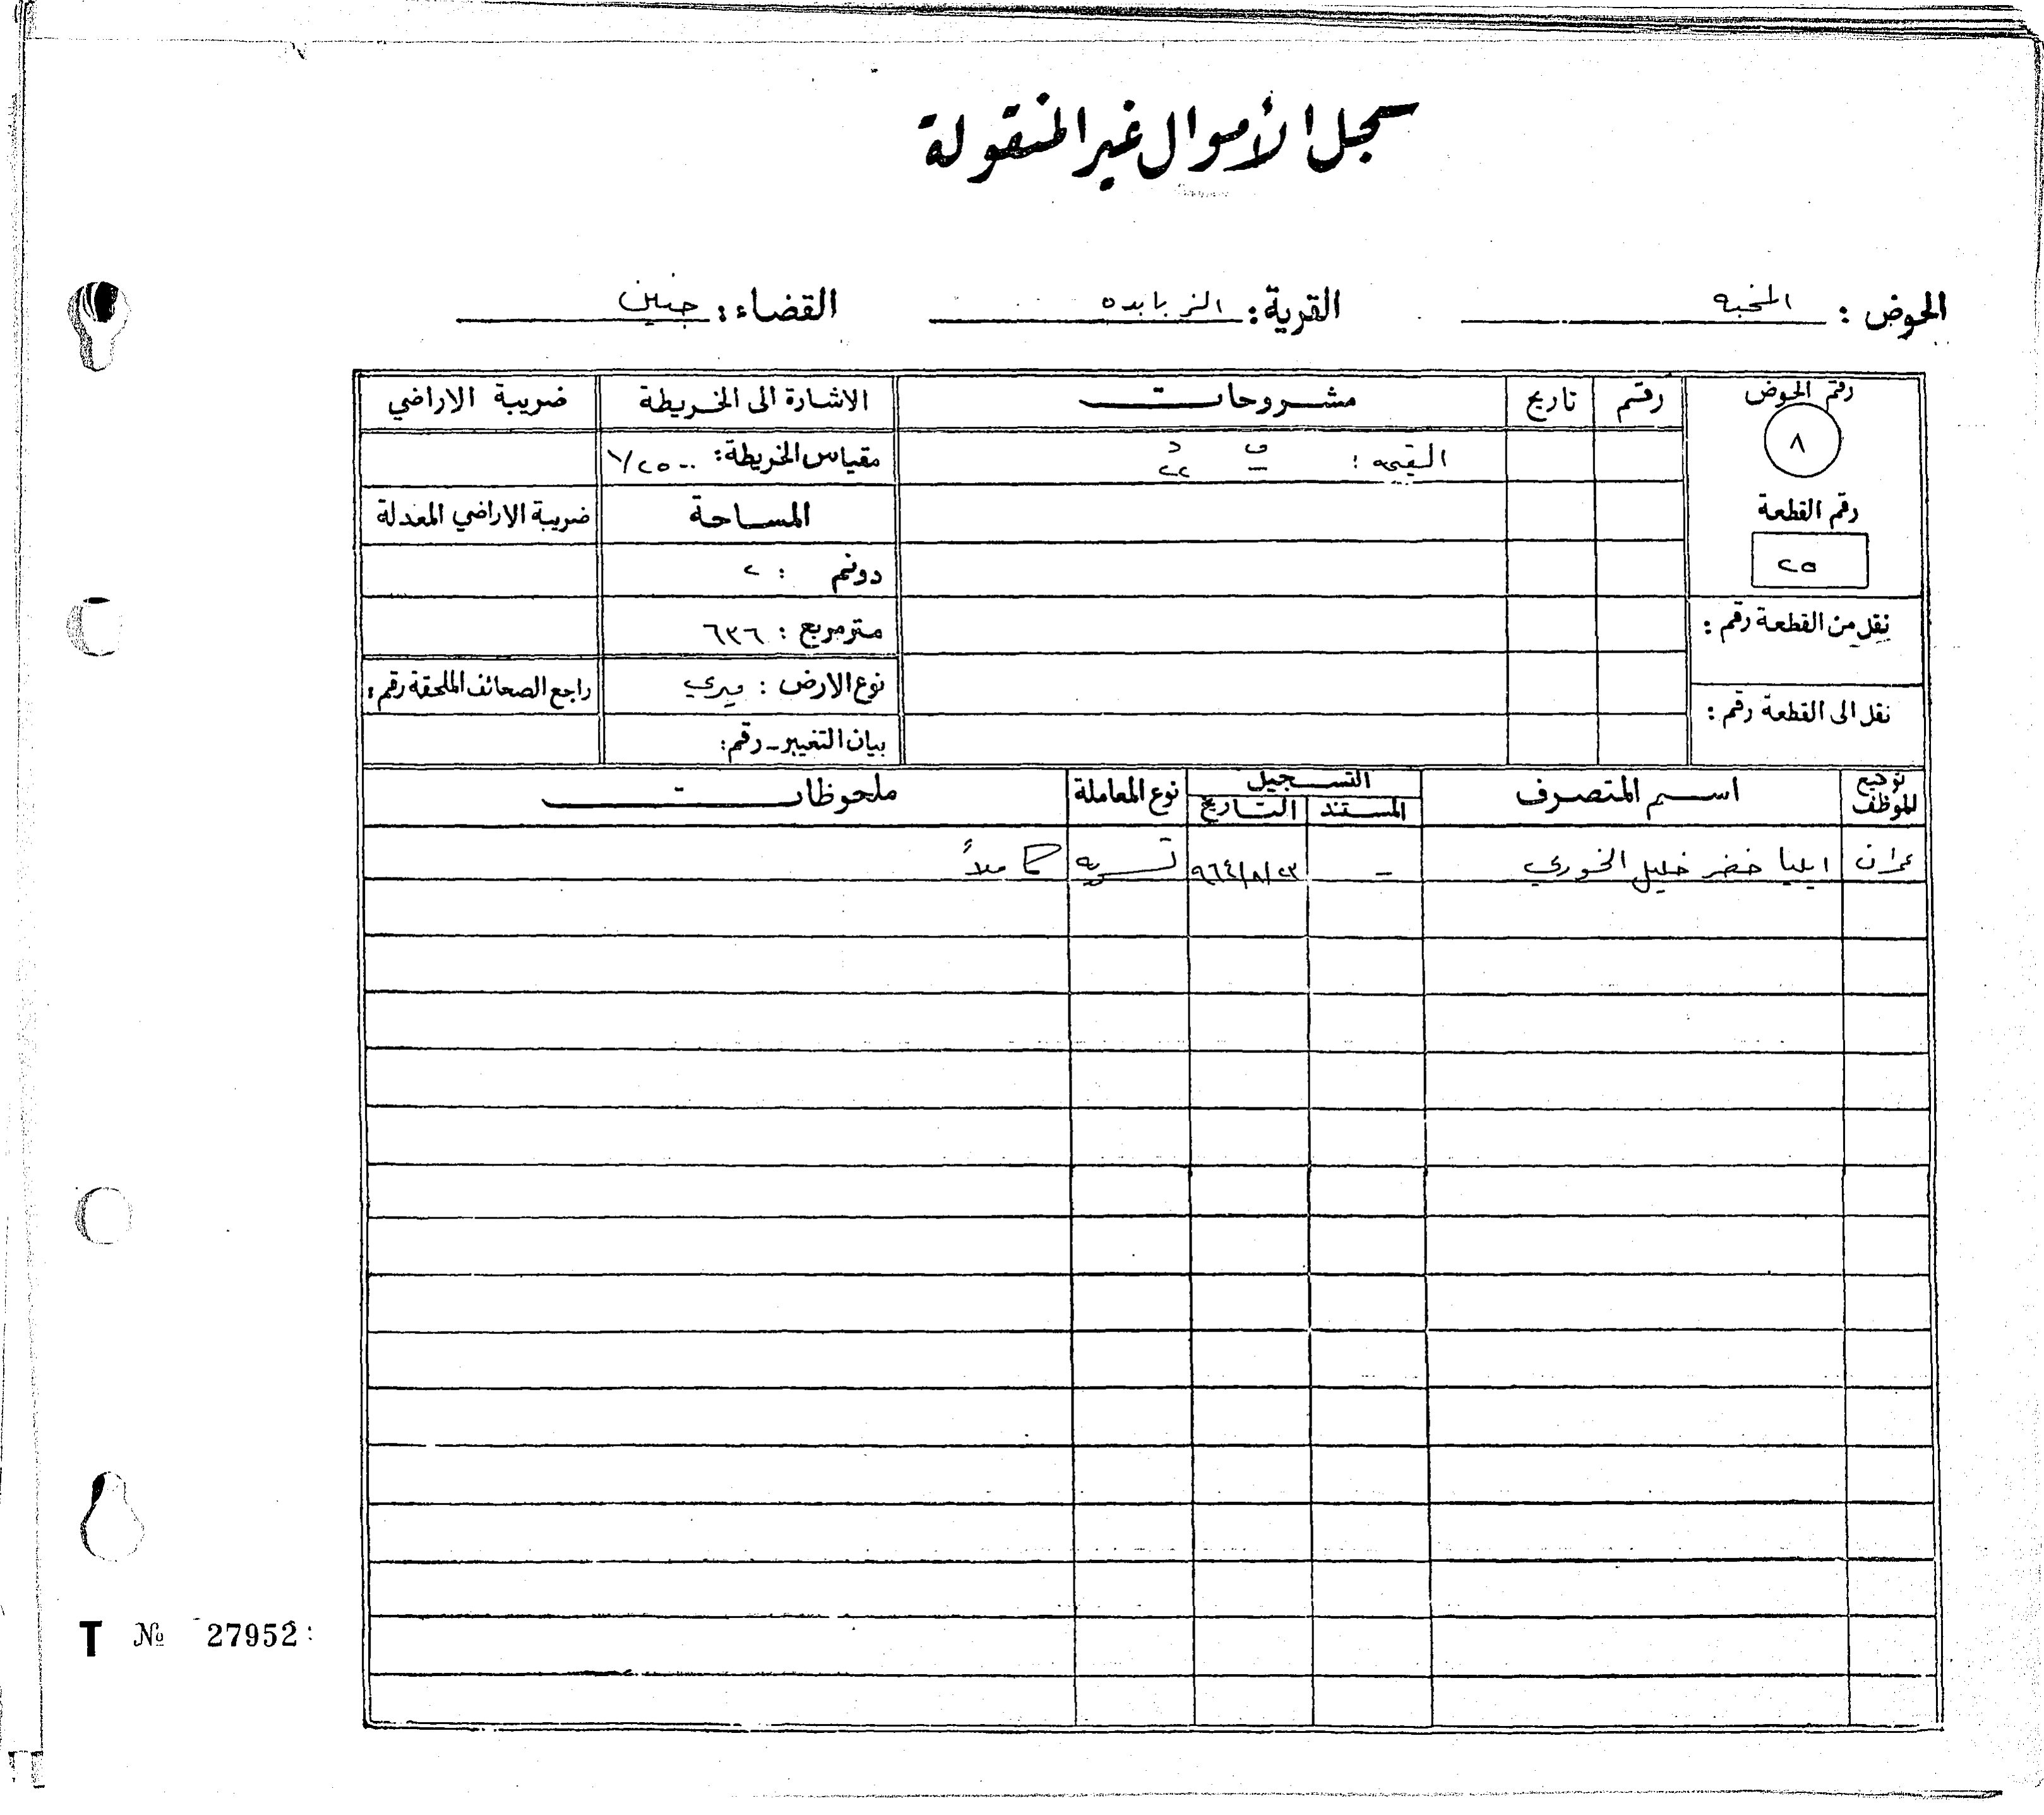 سجل الأموال غير المنقولة
الحوض : المخبه القرية : الزبابده القضاء : جنين
رقم الحوض رقم تاريخ مشروحات الاشارة الى الخريطة ضريبة الاراضي
٨ القيمه : ف — د ٢٢ مقياس الخريطة : ١/٢٥٠٠
رقم القطعة المساحة ضريبة الاراضي المعدلة
٢٥ دونم : ٢
نقل من القطعة رقم : متر مربع : ٦٣٦
نوع الارض : ميري راجع الصحائف الملحقة رقم :
نقل الى القطعة رقم : بيان التغيير - رقم :
توقيع الموظف اسم المتصرف التسجيل نوع المعاملة ملحوظات
المستند التاريخ
عمران ايليا خضر خليل الخوري - ٩٦٤/٨/٢٣ تسويه كاملاً
T № 27952